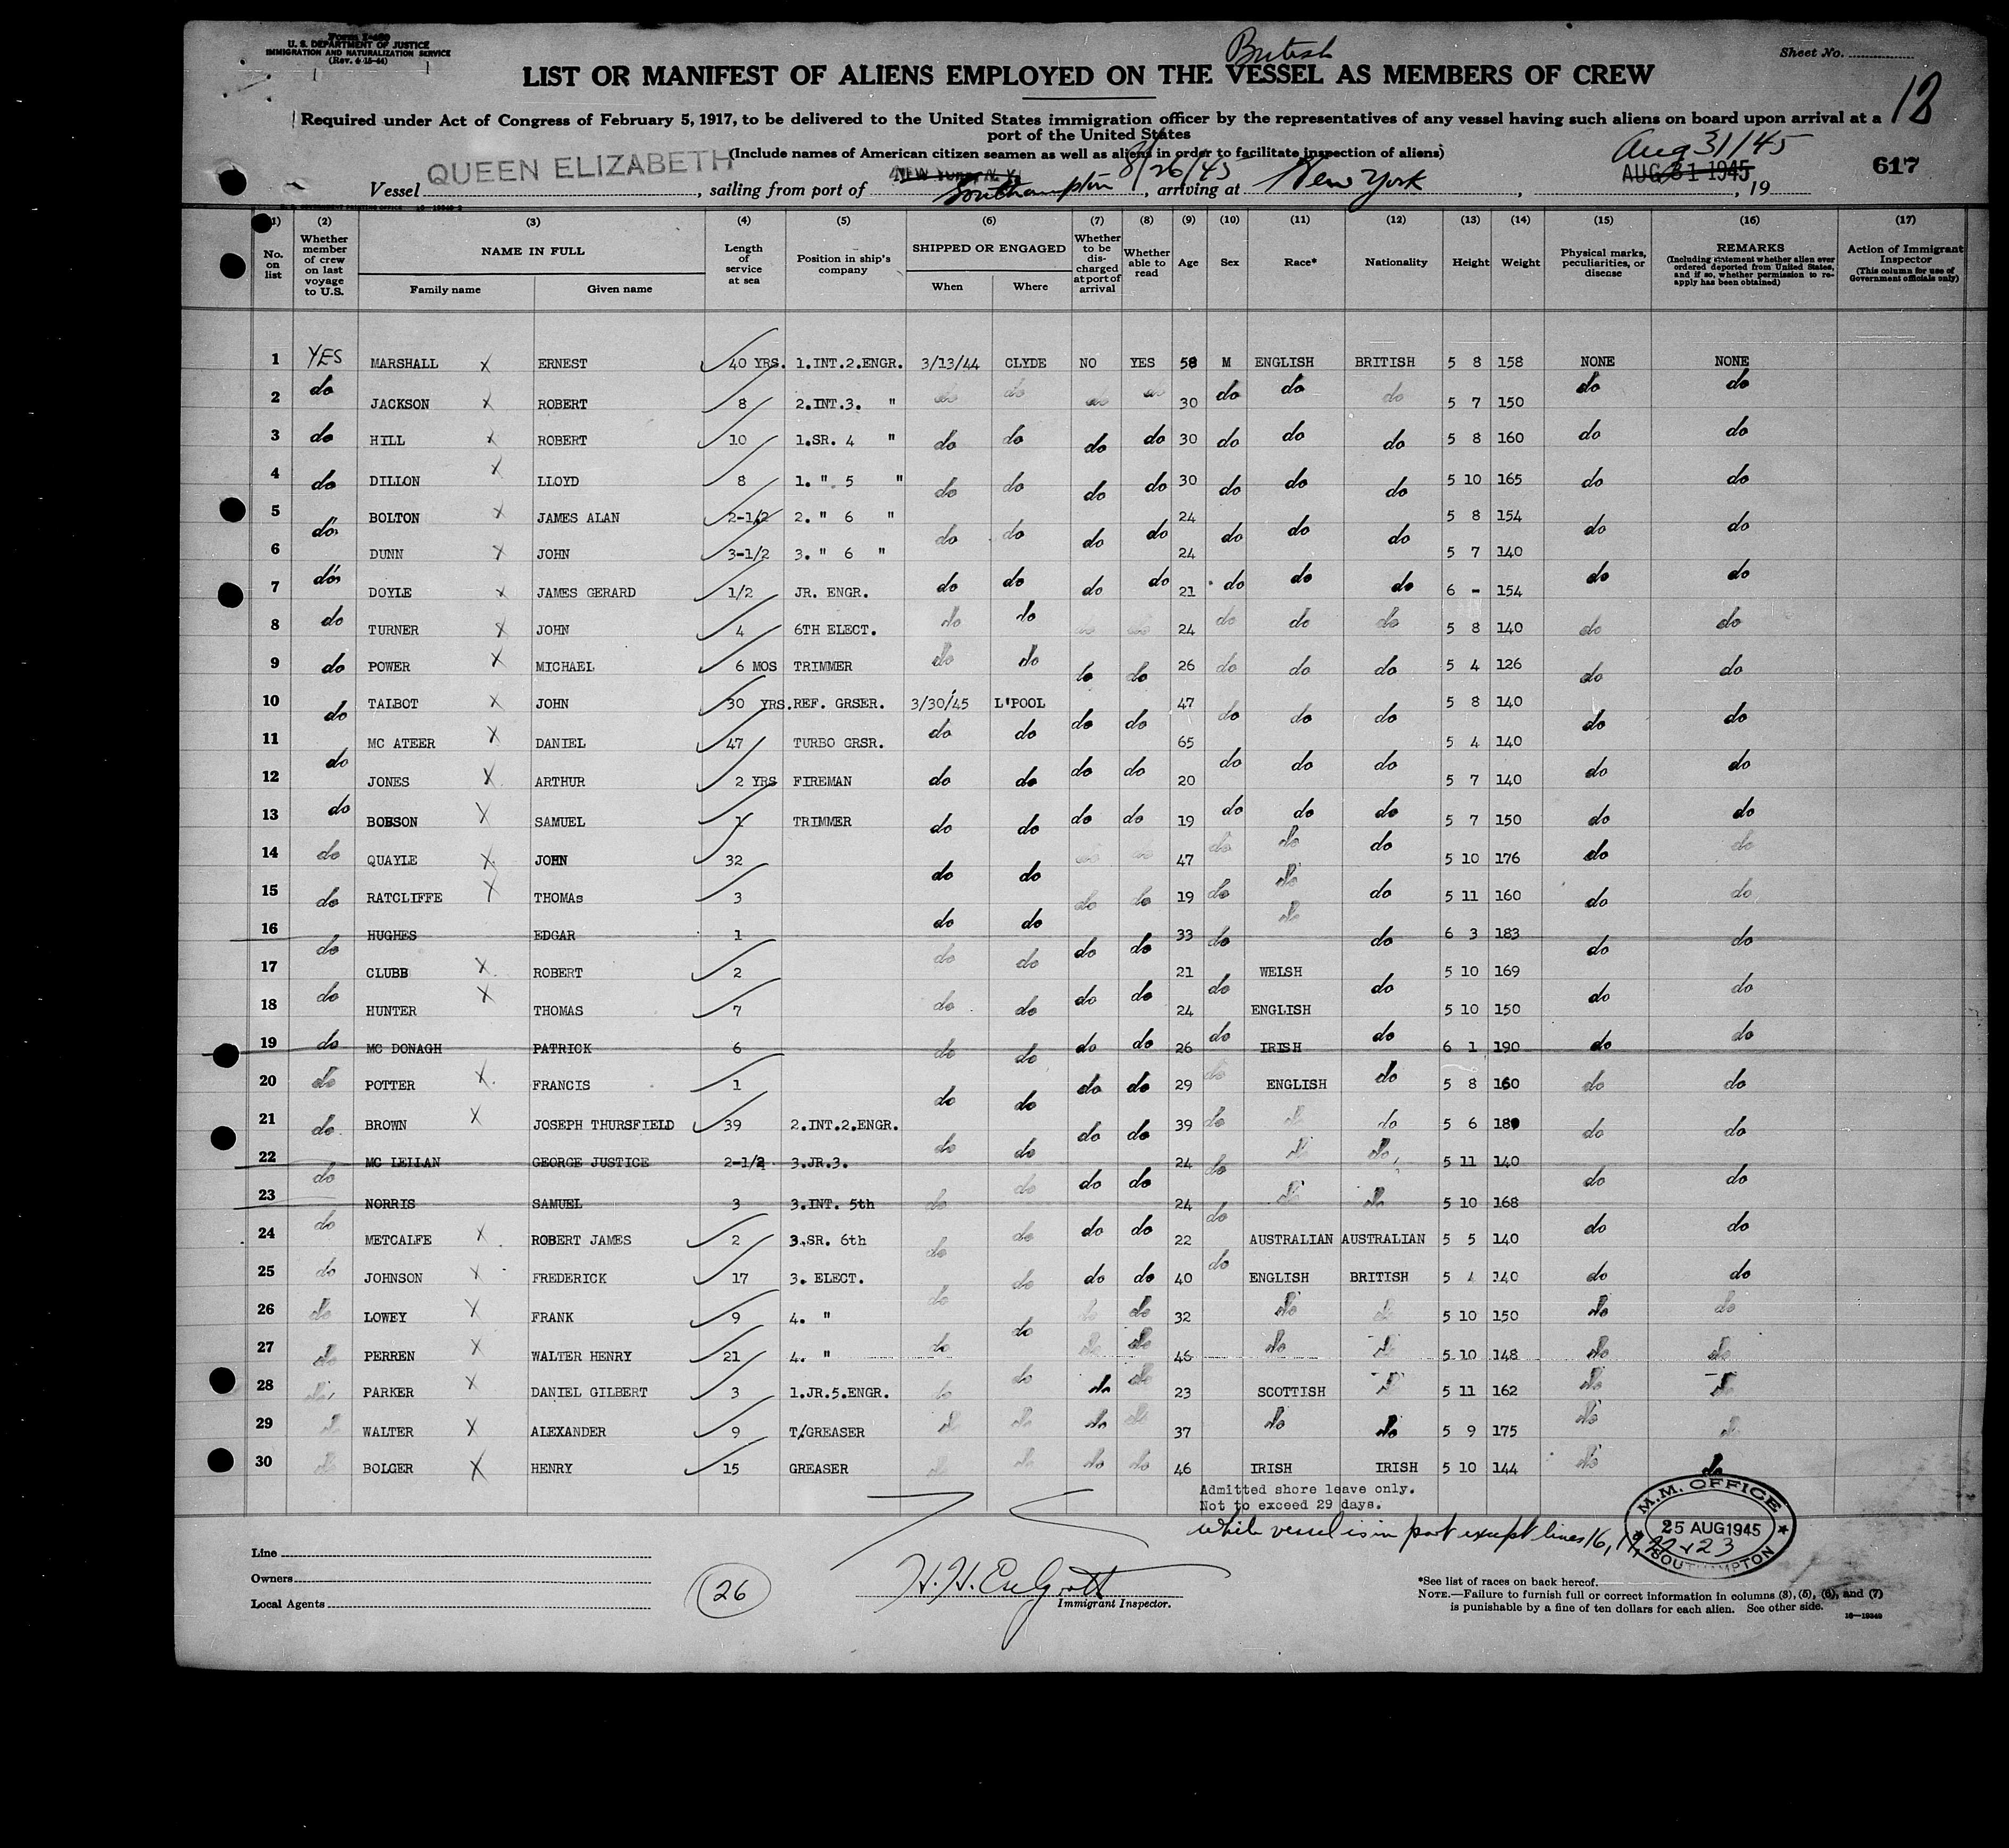 Form I-480
U. S. DEPARTMENT OF JUSTICE
IMMIGRATION AND NATURALIZATION SERVICE
(Rev. 4-15-44)
British
Sheet No.
LIST OR MANIFEST OF ALIENS EMPLOYED ON THE VESSEL AS MEMBERS OF CREW
18
Required under Act of Congress of February 5, 1917, to be delivered to the United States immigration officer by the representatives of any vessel having such aliens on board upon arrival at a
port of the United States
(Include names of American citizen seamen as well as aliens in order to facilitate inspection of aliens)
Aug 31/45
617
Vessel QUEEN ELIZABETH, sailing from port of NEW YORK, N. Y. Southampton 8/26/45, arriving at New York, AUG 31 1945, 19
(1) (2) (3) (4) (5) (6) (7) (8) (9) (10) (11) (12) (13) (14) (15) (16) (17)
No. on list
Whether member of crew on last voyage to U.S.
NAME IN FULL
Family name Given name
Length of service at sea
Position in ship's company
SHIPPED OR ENGAGED
When Where
Whether to be discharged at port of arrival
Whether able to read
Age Sex Race* Nationality Height Weight
Physical marks, peculiarities, or disease
REMARKS
(Including statement whether alien ever ordered deported from United States, and if so, whether permission to reapply has been obtained)
Action of Immigrant Inspector
(This column for use of Government officials only)
1 YES MARSHALL X ERNEST 40 YRS. 1.INT.2.ENGR. 3/13/44 CLYDE NO YES 58 M ENGLISH BRITISH 5 8 158 NONE NONE
2 do JACKSON X ROBERT 8 2.INT.3. " do do do do 30 do do do 5 7 150 do do
3 do HILL X ROBERT 10 1.SR. 4 " do do do do 30 do do do 5 8 160 do do
4 do DILLON X LLOYD 8 1. " 5 " do do do do 30 do do do 5 10 165 do do
5 do BOLTON X JAMES ALAN 2-1/2 2. " 6 " do do do do 24 do do do 5 8 154 do do
6 DUNN X JOHN 3-1/2 3. " 6 " 24 5 7 140
7 do DOYLE X JAMES GERARD 1/2 JR. ENGR. do do do do 21 do do do 6 - 154 do do
8 do TURNER X JOHN 4 6TH ELECT. do do do do 24 do do do 5 8 140 do do
9 do POWER X MICHAEL 6 MOS TRIMMER do do do do 26 do do do 5 4 126 do do
10 do TALBOT X JOHN 30 YRS. REF. GRSER. 3/30/45 L'POOL 47 do do do 5 8 140 do do
11 MC ATEER X DANIEL 47 TURBO GRSR. do do do do 65 5 4 140
12 do JONES X ARTHUR 2 YRS FIREMAN do do do do 20 do do do 5 7 140 do do
13 do BOBSON X SAMUEL 1 TRIMMER do do do do 19 do do do 5 7 150 do do
14 do QUAYLE X JOHN 32 do do do do 47 do do do 5 10 176 do do
15 do RATCLIFFE X THOMAS 3 do do do do 19 do do do 5 11 160 do do
16 HUGHES EDGAR 1 do do 33 do do 6 3 183
17 do CLUBB X ROBERT 2 do do do do 21 WELSH do 5 10 169 do do
18 do HUNTER X THOMAS 7 do do do do 24 do ENGLISH do 5 10 150 do do
19 do MC DONAGH PATRICK 6 do do do do 26 do IRISH do 6 1 190 do do
20 do POTTER X FRANCIS 1 do do do do 29 do ENGLISH do 5 8 160 do do
21 do BROWN X JOSEPH THURSFIELD 39 2.INT.2.ENGR. do do 39 do do do 5 6 180 do do
22 do MC LELLAN GEORGE JUSTICE 2-1/2 3.JR.3. do do 24 do do do 5 11 140 do do
23 do NORRIS SAMUEL 3 3.INT. 5th do do do do 24 do do do 5 10 168
24 METCALFE X ROBERT JAMES 2 3.SR. 6th do do do do 22 AUSTRALIAN AUSTRALIAN 5 5 140 do do
25 do JOHNSON X FREDERICK 17 3. ELECT. do do do do 40 do ENGLISH BRITISH 5 140 do do
26 do LOWEY X FRANK 9 4. " do do do do 32 do do 5 10 150 do do
27 do PERREN X WALTER HENRY 21 4. " do do do do 46 do do 5 10 148 do do
28 do PARKER X DANIEL GILBERT 3 1.JR.5.ENGR. do do do do 23 SCOTTISH do 5 11 162 do do
29 do WALTER X ALEXANDER 9 T/GREASER do do do do 37 do do 5 9 175 do do
30 do BOLGER X HENRY 15 GREASER do do do do 46 IRISH IRISH 5 10 144 do do
Admitted shore leave only.
Not to exceed 29 days.
while vessel is in port except lines 16, 19, 22 & 23
M.M. OFFICE
25 AUG 1945
SOUTHAMPTON
Line
Owners
Local Agents
26
Immigrant Inspector.
*See list of races on back hereof.
NOTE.—Failure to furnish full or correct information in columns (3), (5), (6), and (7)
is punishable by a fine of ten dollars for each alien. See other side.
16—19340